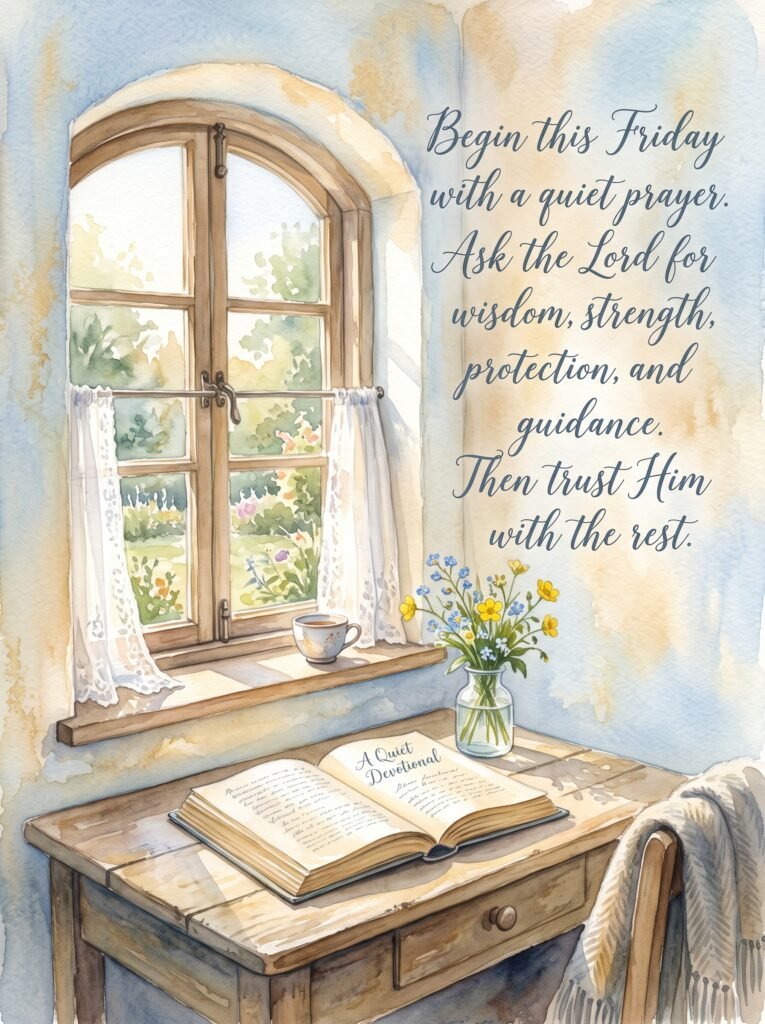 Begin this Friday
with a quiet prayer.
Ask the Lord for
wisdom, strength,
protection, and
guidance.
Then trust Him
with the rest.
A Quiet
Devotional